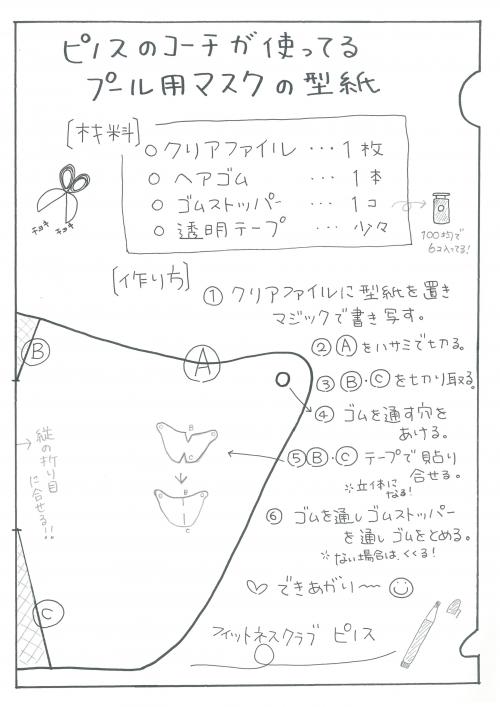 ピノスのコーチが使ってる
プール用マスクの型紙
[材料]
○ クリアファイル … 1枚
○ ヘアゴム … 1本
○ ゴムストッパー … 1コ
○ 透明テープ … 少々
チョキ チョキ
100均で
6コ入ってる!
[作り方]
① クリアファイルに型紙を置き
マジックで書き写す。
② Ⓐをハサミで切る。
③ Ⓑ・Ⓒを切り取る。
④ ゴムを通す穴を
あける。
⑤ Ⓑ・Ⓒ テープで貼り
合せる。
※立体に
なる!
⑥ ゴムを通しゴムストッパー
を通しゴムをとめる。
※ない場合は、くくる!
♡ できあがり〜
フィットネスクラブ ピノス
Ⓐ
Ⓑ
→縦の折り目
に合せる!!
Ⓒ
B
C
B
C